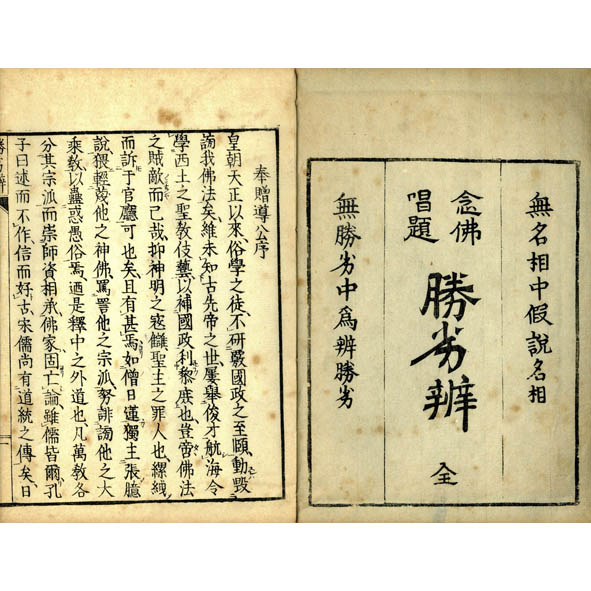 無名相中假說名相
念佛
唱題
勝劣辨
全
無勝劣中爲辨勝劣
奉贈導公序
皇朝天正以來俗學之徒不研覈國政之至頤動毀
謗我佛法矣維未知古先帝之世屢舉俊才航海令
學西土之聖敎伎藝以補國政利黎庶也豈帝佛法
之賊敵而已哉抑神明之寇讎聖王之罪人也縲絏
而訴于官廳可也矣且有甚焉如僧日蓮獨主張臆
說猥輕蔑他之神佛罵詈他之宗派努誹謗他之大
乘敎以蠱惑愚俗焉迺是釋中之外道也凡萬敎各
分其宗派而崇師資相承佛家固亡論雖儒皆爾孔
子曰述而不作信而好古宋儒尚有道統之傳矣日
勝劣辨